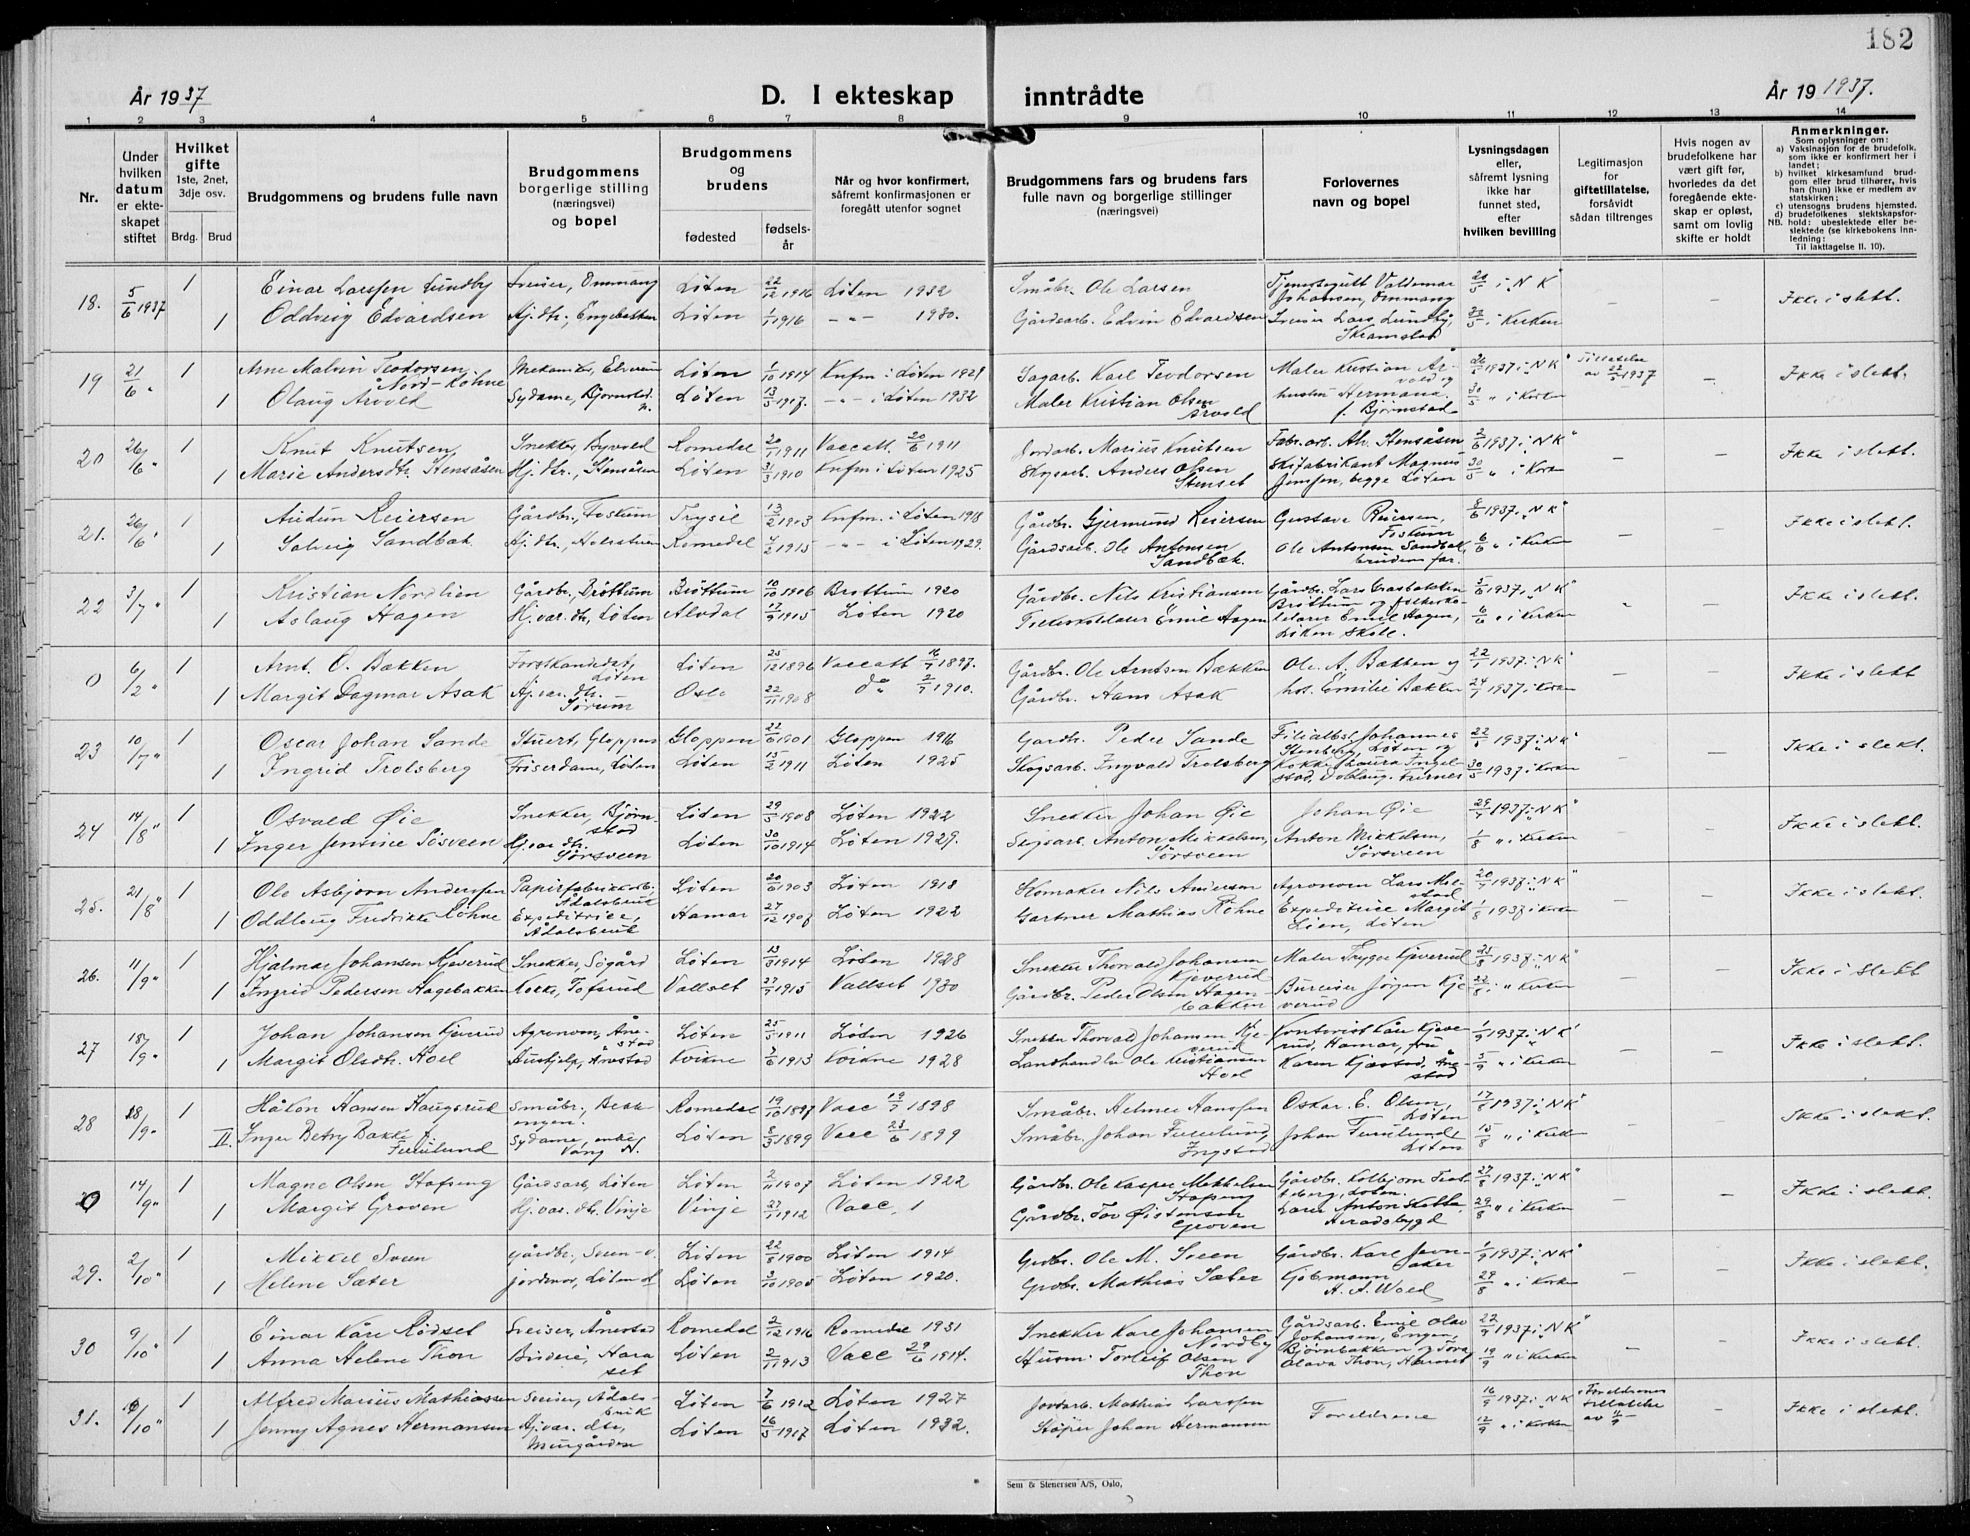 182
År 1937
D. I ekteskap inntrådte
År 19 1937.
1 2 3 4 5 6 7 8 9 10 11 12 13 14
Nr.
Under hvilken datum er ekteskapet stiftet
Hvilket gifte 1ste, 2net, 3dje osv.
Brdg. Brud
Brudgommens og brudens fulle navn
Brudgommens borgerlige stilling (næringsvei) og bopel
Brudgommens og brudens
fødested
fødselsår
Når og hvor konfirmert, såfremt konfirmasjonen er foregått utenfor sognet
Brudgommens fars og brudens fars fulle navn og borgerlige stillinger (næringsvei)
Forlovernes navn og bopel
Lysningsdagen eller, såfremt lysning ikke har funnet sted, efter hvilken bevilling
Legitimasjon for giftetillatelse, forsåvidt sådan tiltrenges
Hvis nogen av brudefolkene har vært gift før, hvorledes da det foregående ekteskap er opløst, samt om lovlig skifte er holdt
Anmerkninger.
Som oplysninger om:
a) Vaksinasjon for de brudefolk, som ikke er konfirmert her i landet;
b) hvilket kirkesamfund brudgom eller brud tilhører, hvis han (hun) ikke er medlem av statskirken;
c) utensogns brudens hjemsted.
d) brudefolkenes slektskapsforhold: ubeslektede eller beslektede (se kirkebokens innledning: Til iakttagelse II. 10).
NB.
18. 5/6 1937 1 Einar Larssen Lundby Sveiser, Ommang Løten 22/12 1916 Løten 1932 Småbr. Ole Larsen Tjenestegutt Valdemar Johansen, Ommang i "N K" Ikke i slekt.
1 Oddveig Edvardsen Hj. dtr., Engebakken Løten 1/1 1916 -"- 1930. Gårdsarb. Edvin Edvardsen Sveiser Lars Lundby, Skramstad i Kirken
19 21/6 " 1 Arne Malvin Teodorsen Nord-Løhne Mekaniker, Elverum Løten 1/10 1914 Knfm. i Løten Sagarb. Karl Teodorsen Maler Kristian Arvold og 1937 i "N K" Tillatelse av 22/5 1937 Ikke i slekt.
1 Olaug Arvold Sydame, Bjørnstad Løten 13/5 1917. -"- i Løten 1932 Maler Kristian Olsen Arvold hustru Hermana f. Bjørnstad 30/5 " i Kirken
20 26/6 " 1 Knut Knutsen Snekker, Byvold Romedal 20/1 1911 Vaccatt. 20/6 1911 Jordarb. Marius Knutsen Fabr. arb. Ah. Stensåsen 2/6 1937 i "N K" Ikke i slekt.
1 Marie Andersdtr. Stensåsen Hj. dtr., Stensåsen Løten 31/3 1910 Knfm i Løten 1925 Skogsarb. Anders Olsen Stenset Skifabrikant Magnus Jensen, begge Løten 30/5 " i Kirken
21. 26/6 " 1 Audun Reiersen Gårdbr., Foskum Trysil 13/2 1903 Knfm. i Løten 1918 Gårdbr. Gjermund Reiersen Gustave Reiersen, Foskum 8/6 1937 i "N K" Ikke i slekt.
1 Solveig Sandbæk Hj. dtr., Romedal 4/2 1915 -"- i Løten 1929. Gårdsarb. Ole Antonsen Sandbæk. Ole Antonsen Sandbæk, brudens far. 6/6 " i Kirken
22 3/7 " 1 Kristian Nordlien Gårdbr., Brøttum Brøttum 10/10 1906 Brøttum 1920 Gårdbr. Nils Kristiansen Gårdbr. Lars Grasbakken Brøttum og folkeskolelærer Emil Hagen, Løken skole. 5/6 1937. "N K" Ikke i slekt.
1 Aslaug Hagen Hj. var. dtr, Løten Alvdal 17/9 1915 Løten 1920 Folkeskolelærer Emil Hagen 6/6 " i Kirken
0 6/2 " 1 Arnt. O. Bækken Forstkandidat, Løten Løten 25/12 1896 Vaccatt 16/7 1897. Gårdbr. Ole Arntsen Bækken Ole. A. Bækken og 22/1 1937 i "N K" Ikke i slekt
1 Margit Dagmar Asak Hj. var. dtr. Sørum Oslo 22/11 1908 do 2/7 1910. Gårdbr. Hans Asak hos. Emilie Bækken 24/1 1937 i Kirken
23 10/7 " 1 Oscar Johan Sande Stuert, Gloppen Gloppen 22/6 1901 Gloppen 1916 Gårdbr. Peder Sande Filialbst. Johannes Stenberg, Løten og 1937 i "N K" Ikke i slekt.
1 Ingrid Trolsberg Friserdame, Løten Løten 15/2 1911 Løten 1925 Skogsarb. Ingvald Trolsberg Kokke Laura Engelstad, Doblaug. Furnes 30/5 1937 i Kirken
24 14/8 " 1 Osvald Øie Snekker, Bjørnstad Løten 29/5 1908 Løten 1922 Snekker Johan Øie Johan Øie 29/7 1937 i "N K" Ikke i slekt.
1 Inger Jensine Sösveen Hj. var. dtr. Sørsveen Løten 30/10 1914 Løten 1929. Skogsarb. Anton Mikkelsen, Sørsveen Anton Mikkelsen, Sørsveen 1/8 " i Kirken
25. 21/8 " 1 Ole Asbjørn Anderssen Papirfabrikkarb., Ådalsbruk Løten 20/6 1903 Løten 1918 Skomaker Nils Andersen Agronom Lars Melstad 20/7 1937 i "N K" Ikke i slekt.
1 Oddbørg Fredrikke Röhne Expeditrice, Ådalsbruk Hamar 27/12 1907 Løten 1922 Gartner Mathias Röhne Expeditrice Margit Lien, Løten 1/8 1937 i Kirken
26. 11/9 " 1 Hjalmar Johansen Kjeverud Snekker, Sögård Løten 13/3 1914 Løten 1928 Snekker Thorvald Johansen Kjeverud Maler Trygve Kjeverud 25/8 1937 i "N K" Ikke i slekt
1 Ingrid Pedersen Hagebakken Kokke, Tofsrud Vallset 27/7 1915 Vallset 1930 Gårdbr. Peder Olsen Hagenbakken Bureiser Jørgen Kjeverud 22/8 i " Kirken
27 18/9 " 1 Johan Johansen Kjeverud Agronom, Ånestad Løten 25/5 1911 Løten 1926 Snekker Thorvald Johansen Kjeverud Kontorist Kåre Kjeverud, Hamar, fru 1/9 1937 i "N K" Ikke i slekt.
1 Margit Olsdtr. Hoel Hushjelp, Ånestad Kvikne 1913 Kvikne 1928 Landhandler Ole Kristiansen Hoel Karen Kjæstad, Ånestad 5/9 " i Kirken
28 18/9 " 1 Håkon Hansen Haugsrud Småbr., Bekkengen. Romedal 19/10 1897 Vacc 19/7 1898 Småbr. Helmer Hanssen Oskar E. Olsen, Løten 17/8 1937 i "N K" Ikke i slekt.
II. Inger Betzy Bakke f. Furulund Sydame, enke Vang H. Løten 8/3 1899 Vacc 23/6 1899 Småbr. Johan Furulund, Ingstad Johan Furulund, Løten 15/8 " i Kirken
14/9 " 1 Magne Olsen Stafseng Gårdsarb, Løten Løten 2/11 1907 Løten 1922 Gårdbr. Ole Kasper Mikkelsen Stafseng Gårdbr. Kolbjørn Løten. 27/8 1937 i "N K" Ikke i slekt.
1 Margit Groven Hj. var. dtr. Vinje Vinje 27/1 1912 Vacc, 1 Gårdbr. Tov Øistensen Groven Lars Anton Heradsbygd 29/8 " i Kirken
29. 2/10 " 1 Mikkel Sveen gårdbr., Sveen Løten 22/8 1900 Løten 1914 Grdbr. Ole M. Sveen Gårdbr. Karl 1/9 1937 i "N K" Ikke i slekt.
1 Helene Sæter jordmor, Løten Løten 3/10 1905 Løten 1920. Grdbr. Mathias Sæter Kjöbmann A. A. Wold 29/8 " i Kirken
30 9/10 " 1 Einar Kåre Rødset Sveiser, Ånestad Romedal 2/12 1916 Romedal 1931 Snekker Karl Johansen Nordby Gårdsarb. Emil Olav Johansen, Engen, 22/9 1937 i "N K" Ikke i slekt.
1 Anna Helene Thon Budeie, Haraset Løten 2/11 1913 Vacc 29/6 1914. Husm. Torleif Olsen Thon Bjørnbakken og Tora Olava Thon, 19/9 " i Kirken
31. /10 " 1 Alfred Marius Mathiassen Sveiser, Ådalsbruk Løten 7/6 1912 Løten 1927 Jordarb. Mathias Larssen Foreldrene 16/9 1937 i "N K" Foreldrenes tillatelse av 4/9 - Ikke i slekt.
1 Jenny Agnes Hermansen Hj. var. dtr, Murgården Løten 16/5 1917 Løten 1932. Støper Johan Hermansen 12/9 " i Kirken
Sem & Stenersen A/S, Oslo,